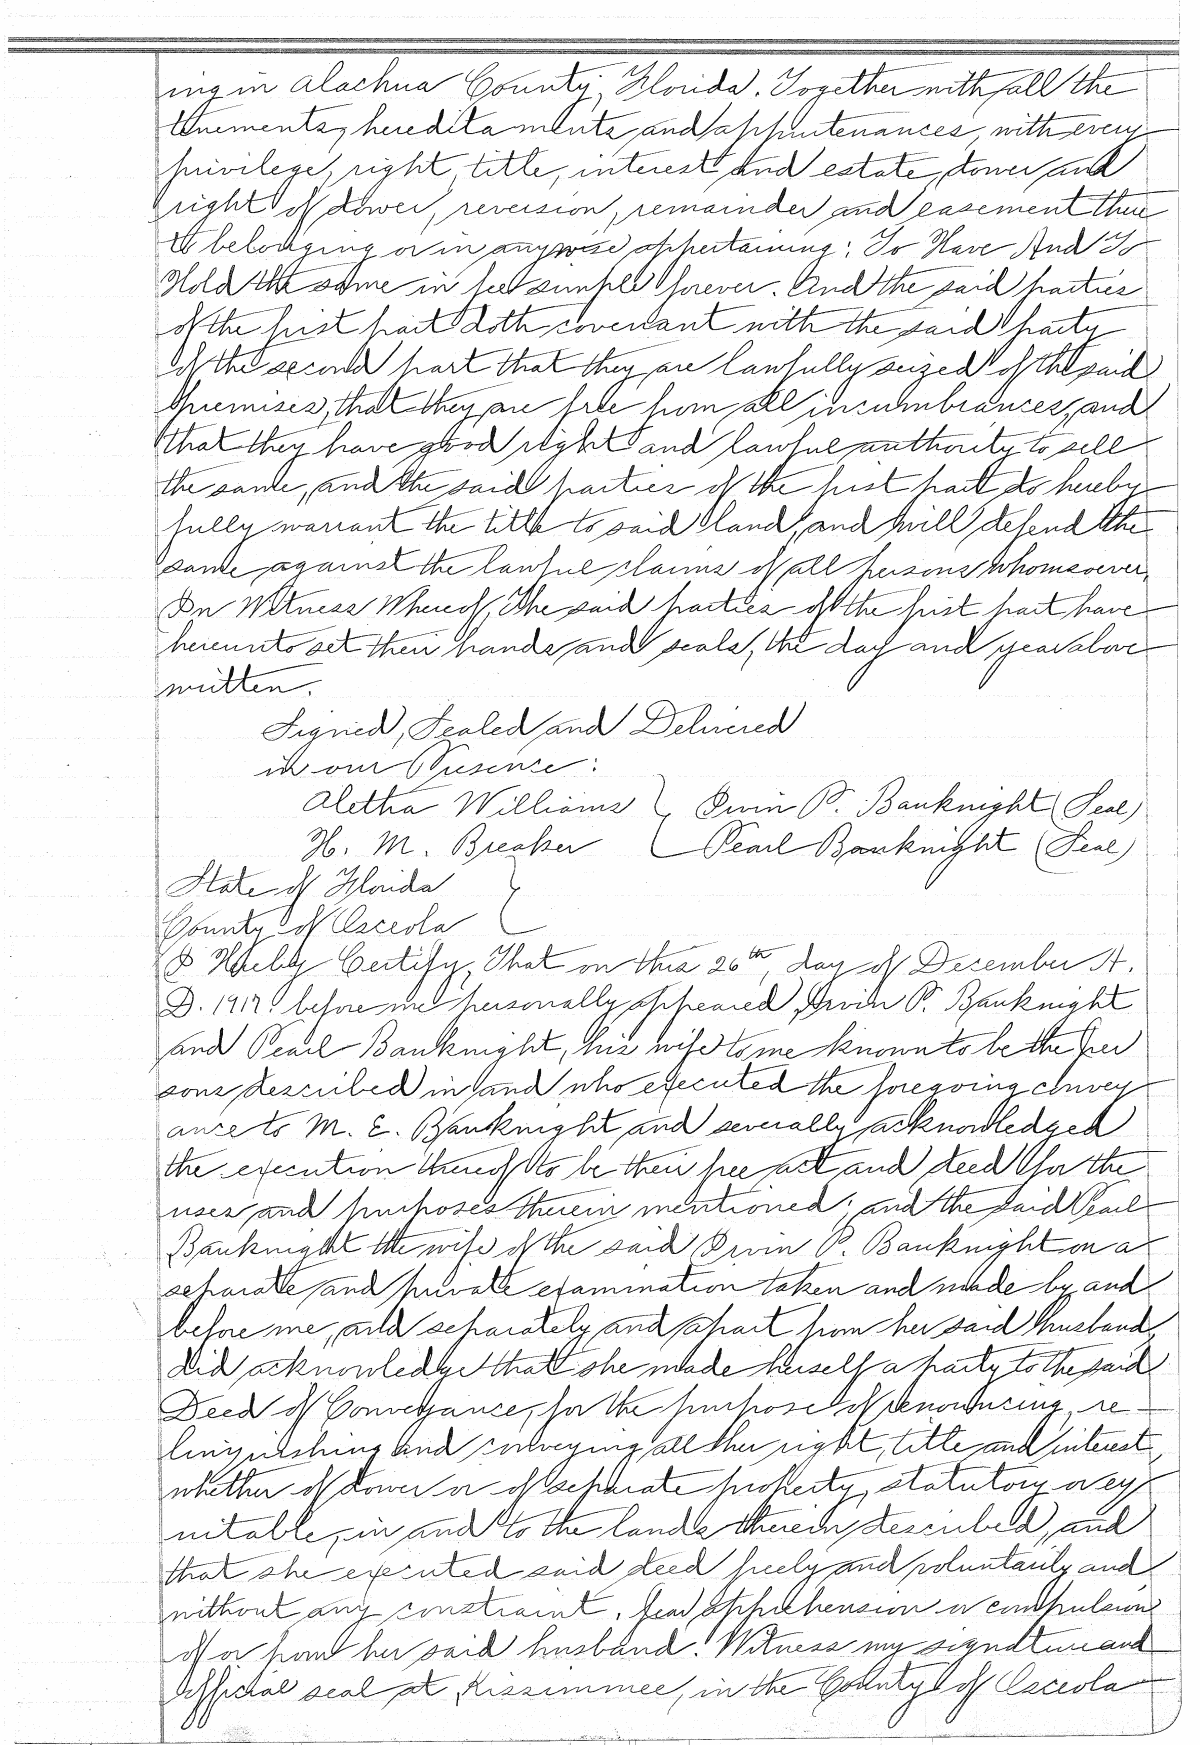 ing in Alachua County, Florida. Together with all the
tenements, heredita ments, and appurtenances, with every
privilege, right, title, interest and estate, dower and
right of dower, reversion, remainder and easement there
to belonging or in anywise appertaining: To Have And To
Hold the same in fee simple forever. And the said parties
of the first part doth covenant with the said party
of the second part that they are lawfully seized of the said
premises, that they are free from all incumbrances, and
that they have good right and lawful authority to sell
the same, and the said parties of the first part do hereby
fully warrant the title to said land, and will defend the
same against the lawful claims of all persons whomsoever.
In Witness Whereof, The said parties of the first part have
hereunto set their hands and seals, the day and year above
written.
Signed, Sealed and Delivered
in our Presence:
Aletha Williams } Irvin P. Banknight (Seal)
H. M. Breaker Pearl Banknight (Seal)
State of Florida }
County of Osceola
I Hereby Certify, That on this 26th, day of December A.
D. 1917. before me personally appeared Irvin P. Banknight
and Pearl Banknight, his wife to me known to be the per
sons described in and who executed the foregoing convey
ance to M. E. Banknight and severally acknowledged
the execution thereof to be their free act and deed for the
uses and purposes therein mentioned; and the said Pearl
Banknight the wife of the said Irvin P. Banknight on a
separate and private examination taken and made by and
before me, and separately and apart from her said husband,
did acknowledge that she made herself a party to the said
Deed of Conveyance, for the purpose of renouncing, re-
linquishing and conveying all her right, title and interest,
whether of dower or of separate property, statutory or eq
uitable, in and to the lands therein described, and
that she executed said deed freely and voluntarily and
without any constraint, fear, apprehension or compulsion
of or from her said husband. Witness my signature and
official seal at Kissimmee, in the County of Osceola